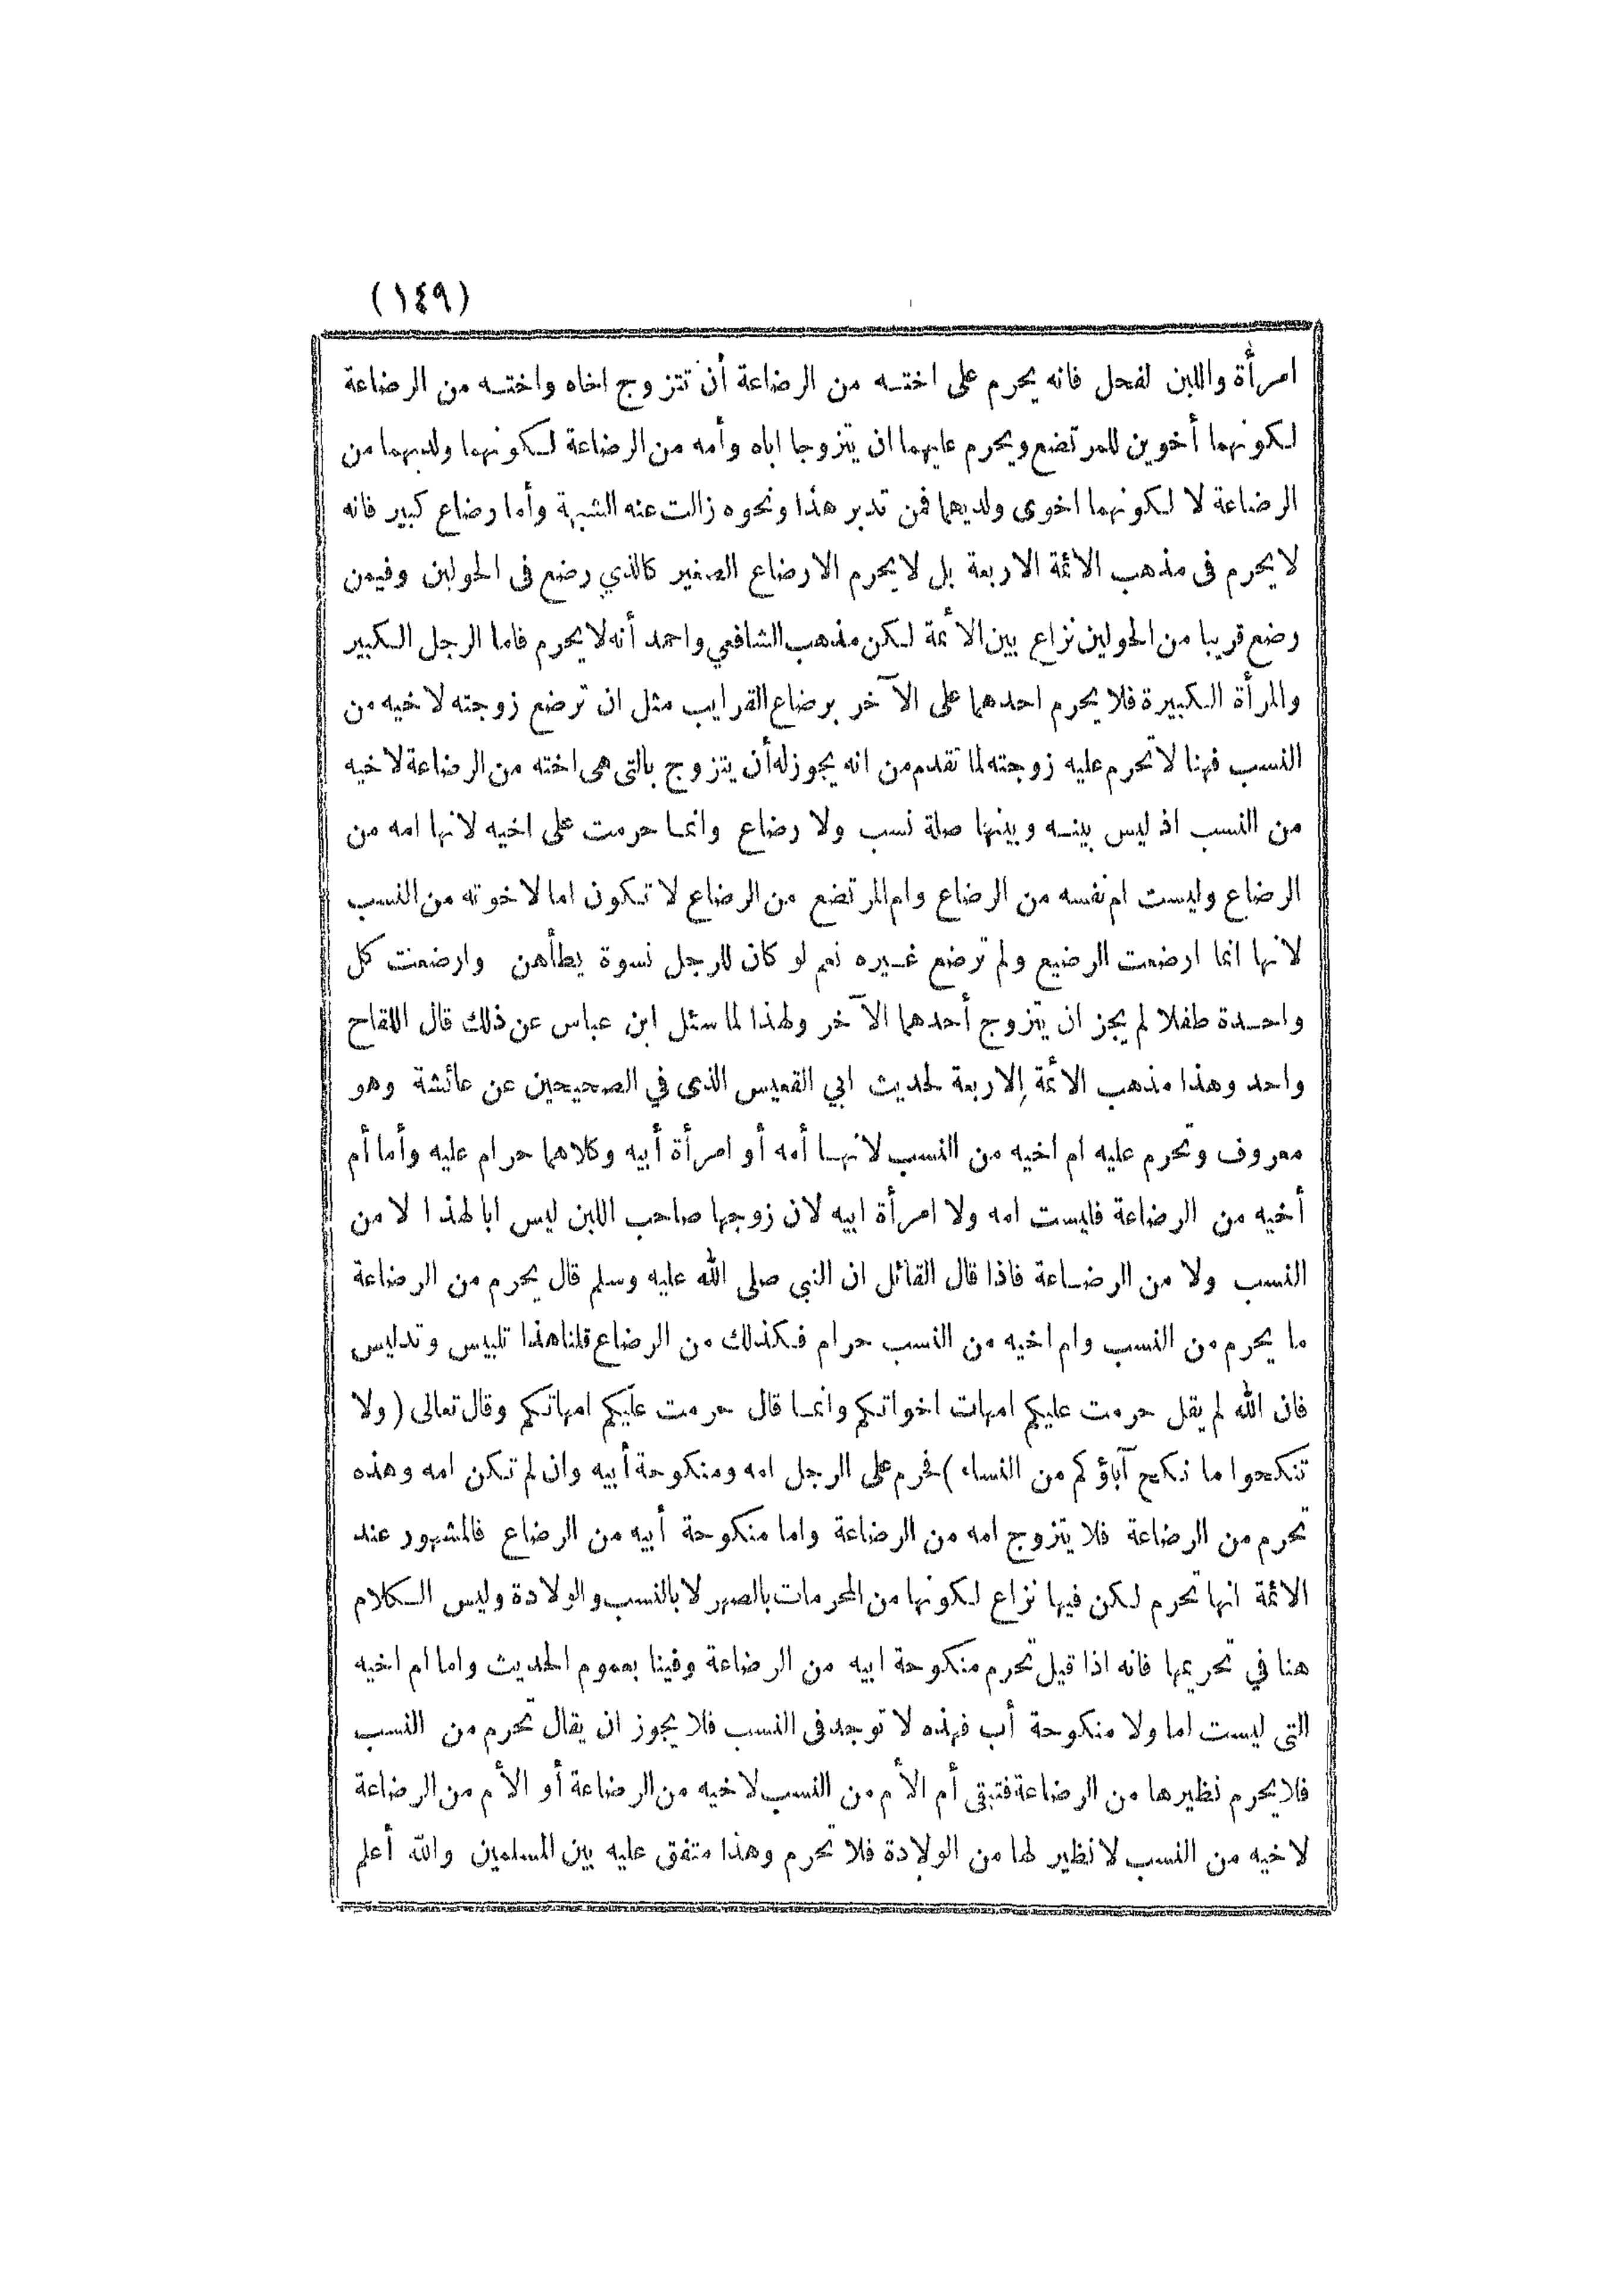 (١٤٩)
امرأة واللبن لفحل فانه يحرم على اختـه من الرضاعة أن تتزوج اخاه واختـه من الرضاعة
لكونهما أخوين للمرتضع ويحرم عليهما ان يتزوجا اباه وأمه من الرضاعة لكونهما ولديهما من
الرضاعة لا لكونهما اخوى ولديهما فمن تدبر هذا ونحوه زالت عنه الشبهة وأما رضاع كبير فانه
لا يحرم فى مذهب الائمة الاربعة بل لا يحرم الا رضاع الصغير كالذي رضع فى الحولين وفيمن
رضع قريبا من الحولين نزاع بين الأئمة لكن مذهب الشافعي واحمد أنه لا يحرم فاما الرجل الكبير
والمرأة الكبيرة فلا يحرم احدهما على الآخر برضاع القرايب مثل ان ترضع زوجته لاخيه من
النسب فهنا لا تحرم عليه زوجته لما تقدم من انه يجوز له أن يتزوج بالتى هى اخته من الرضاعة لاخيه
من النسب اذ ليس بينـه وبينها صلة نسب ولا رضاع وانمـا حرمت على اخيه لانها امه من
الرضاع وليست ام نفسه من الرضاع وام المرتضع من الرضاع لا تكون اما لاخوته من النسب
لانها انما ارضعت الرضيع ولم ترضع غـيره نعم لو كان للرجل نسوة يطأهن وارضعت كل
واحـدة طفلا لم يجز ان يتزوج أحدهما الآخر ولهذا لما سئل ابن عباس عن ذلك قال اللقاح
واحد وهذا مذهب الائمة الاربعة لحديث ابي القعيس الذى في الصحيحين عن عائشة وهو
معروف وتحرم عليه ام اخيه من النسب لانهـا أمه أو امرأة أبيه وكلاهما حرام عليه وأما أم
أخيه من الرضاعة فليست امه ولا امرأة ابيه لان زوجها صاحب اللبن ليس ابا لهذا لا من
النسب ولا من الرضـاعة فاذا قال القائل ان النبي صلى الله عليه وسلم قال يحرم من الرضاعة
ما يحرم من النسب وام اخيه من النسب حرام فكذلك من الرضاع قلنا هذا تلبيس وتدليس
فان الله لم يقل حرمت عليكم امهات اخواتكم وانمـا قال حرمت عليكم امهاتكم وقال تعالى (ولا
تنكحوا ما نكح آباؤكم من النساء) فحرم على الرجل امه ومنكوحة أبيه وان لم تكن امه وهذه
تحرم من الرضاعة فلا يتزوج امه من الرضاعة واما منكوحة أبيه من الرضاع فالمشهور عند
الائمة انها تحرم لكن فيها نزاع لكونها من المحرمات بالصهر لا بالنسب والولادة وليس الكلام
هنا في تحريمها فانه اذا قيل تحرم منكوحة ابيه من الرضاعة وفينا بعموم الحديث واما ام اخيه
التى ليست اما ولا منكوحة أب فهذه لا توجد فى النسب فلا يجوز ان يقال تحرم من النسب
فلا يحرم نظيرها من الرضاعة فتبقى أم الأم من النسب لاخيه من الرضاعة أو الأم من الرضاعة
لاخيه من النسب لا نظير لها من الولادة فلا تحرم وهذا متفق عليه بين المسلمين والله أعلم